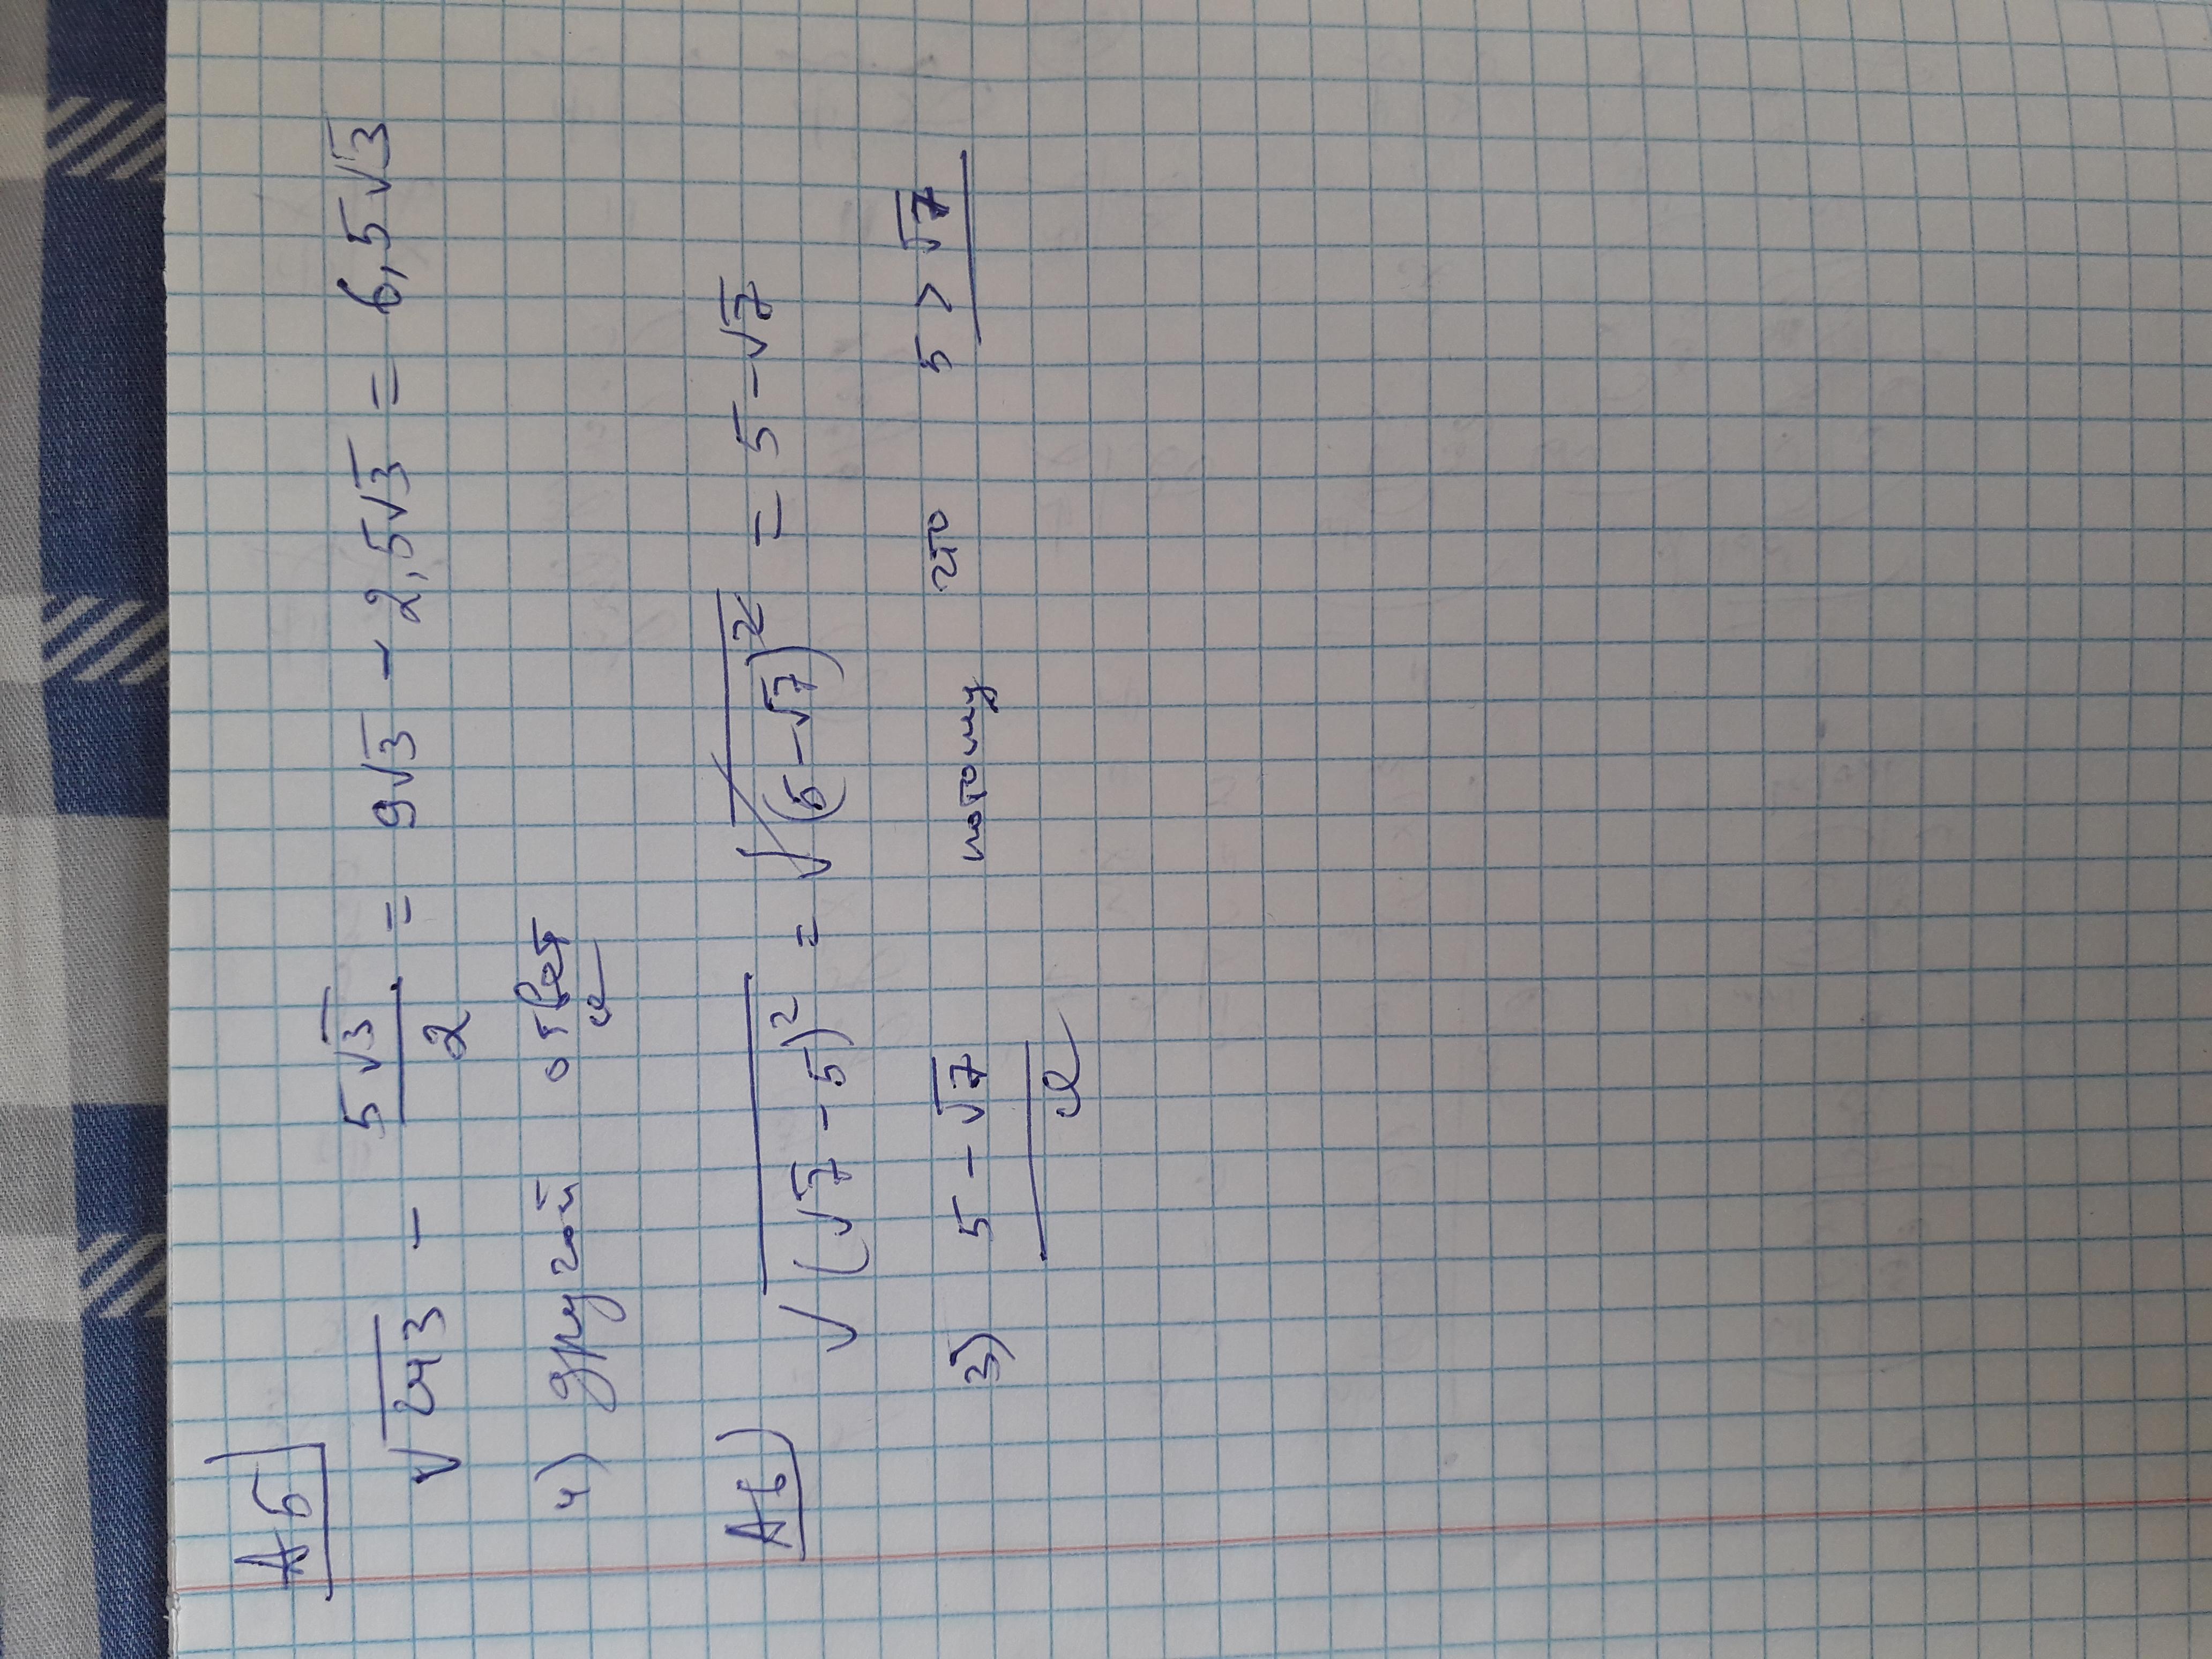 А5)
√243 - 5√3/2 = 9√3 - 2,5√3 = 6,5√3
4) другой ответ
А6)
√(√7 - 5)² = √(5-√7)² = 5-√7
3) 5-√7 потому что 5 > √7